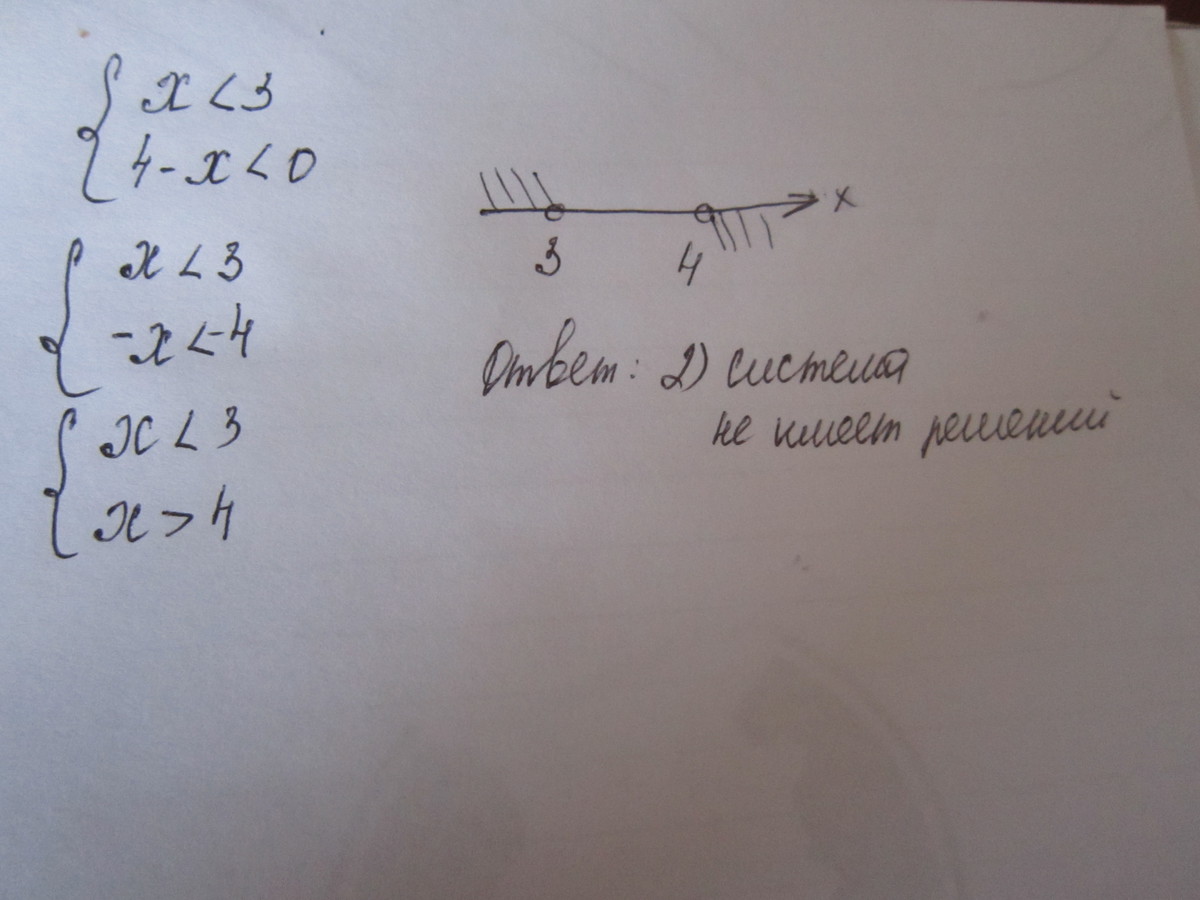 x < 3
4 - x < 0
x < 3
-x < -4
x < 3
x > 4
x
3 4
Ответ: 2) система
не имеет решений